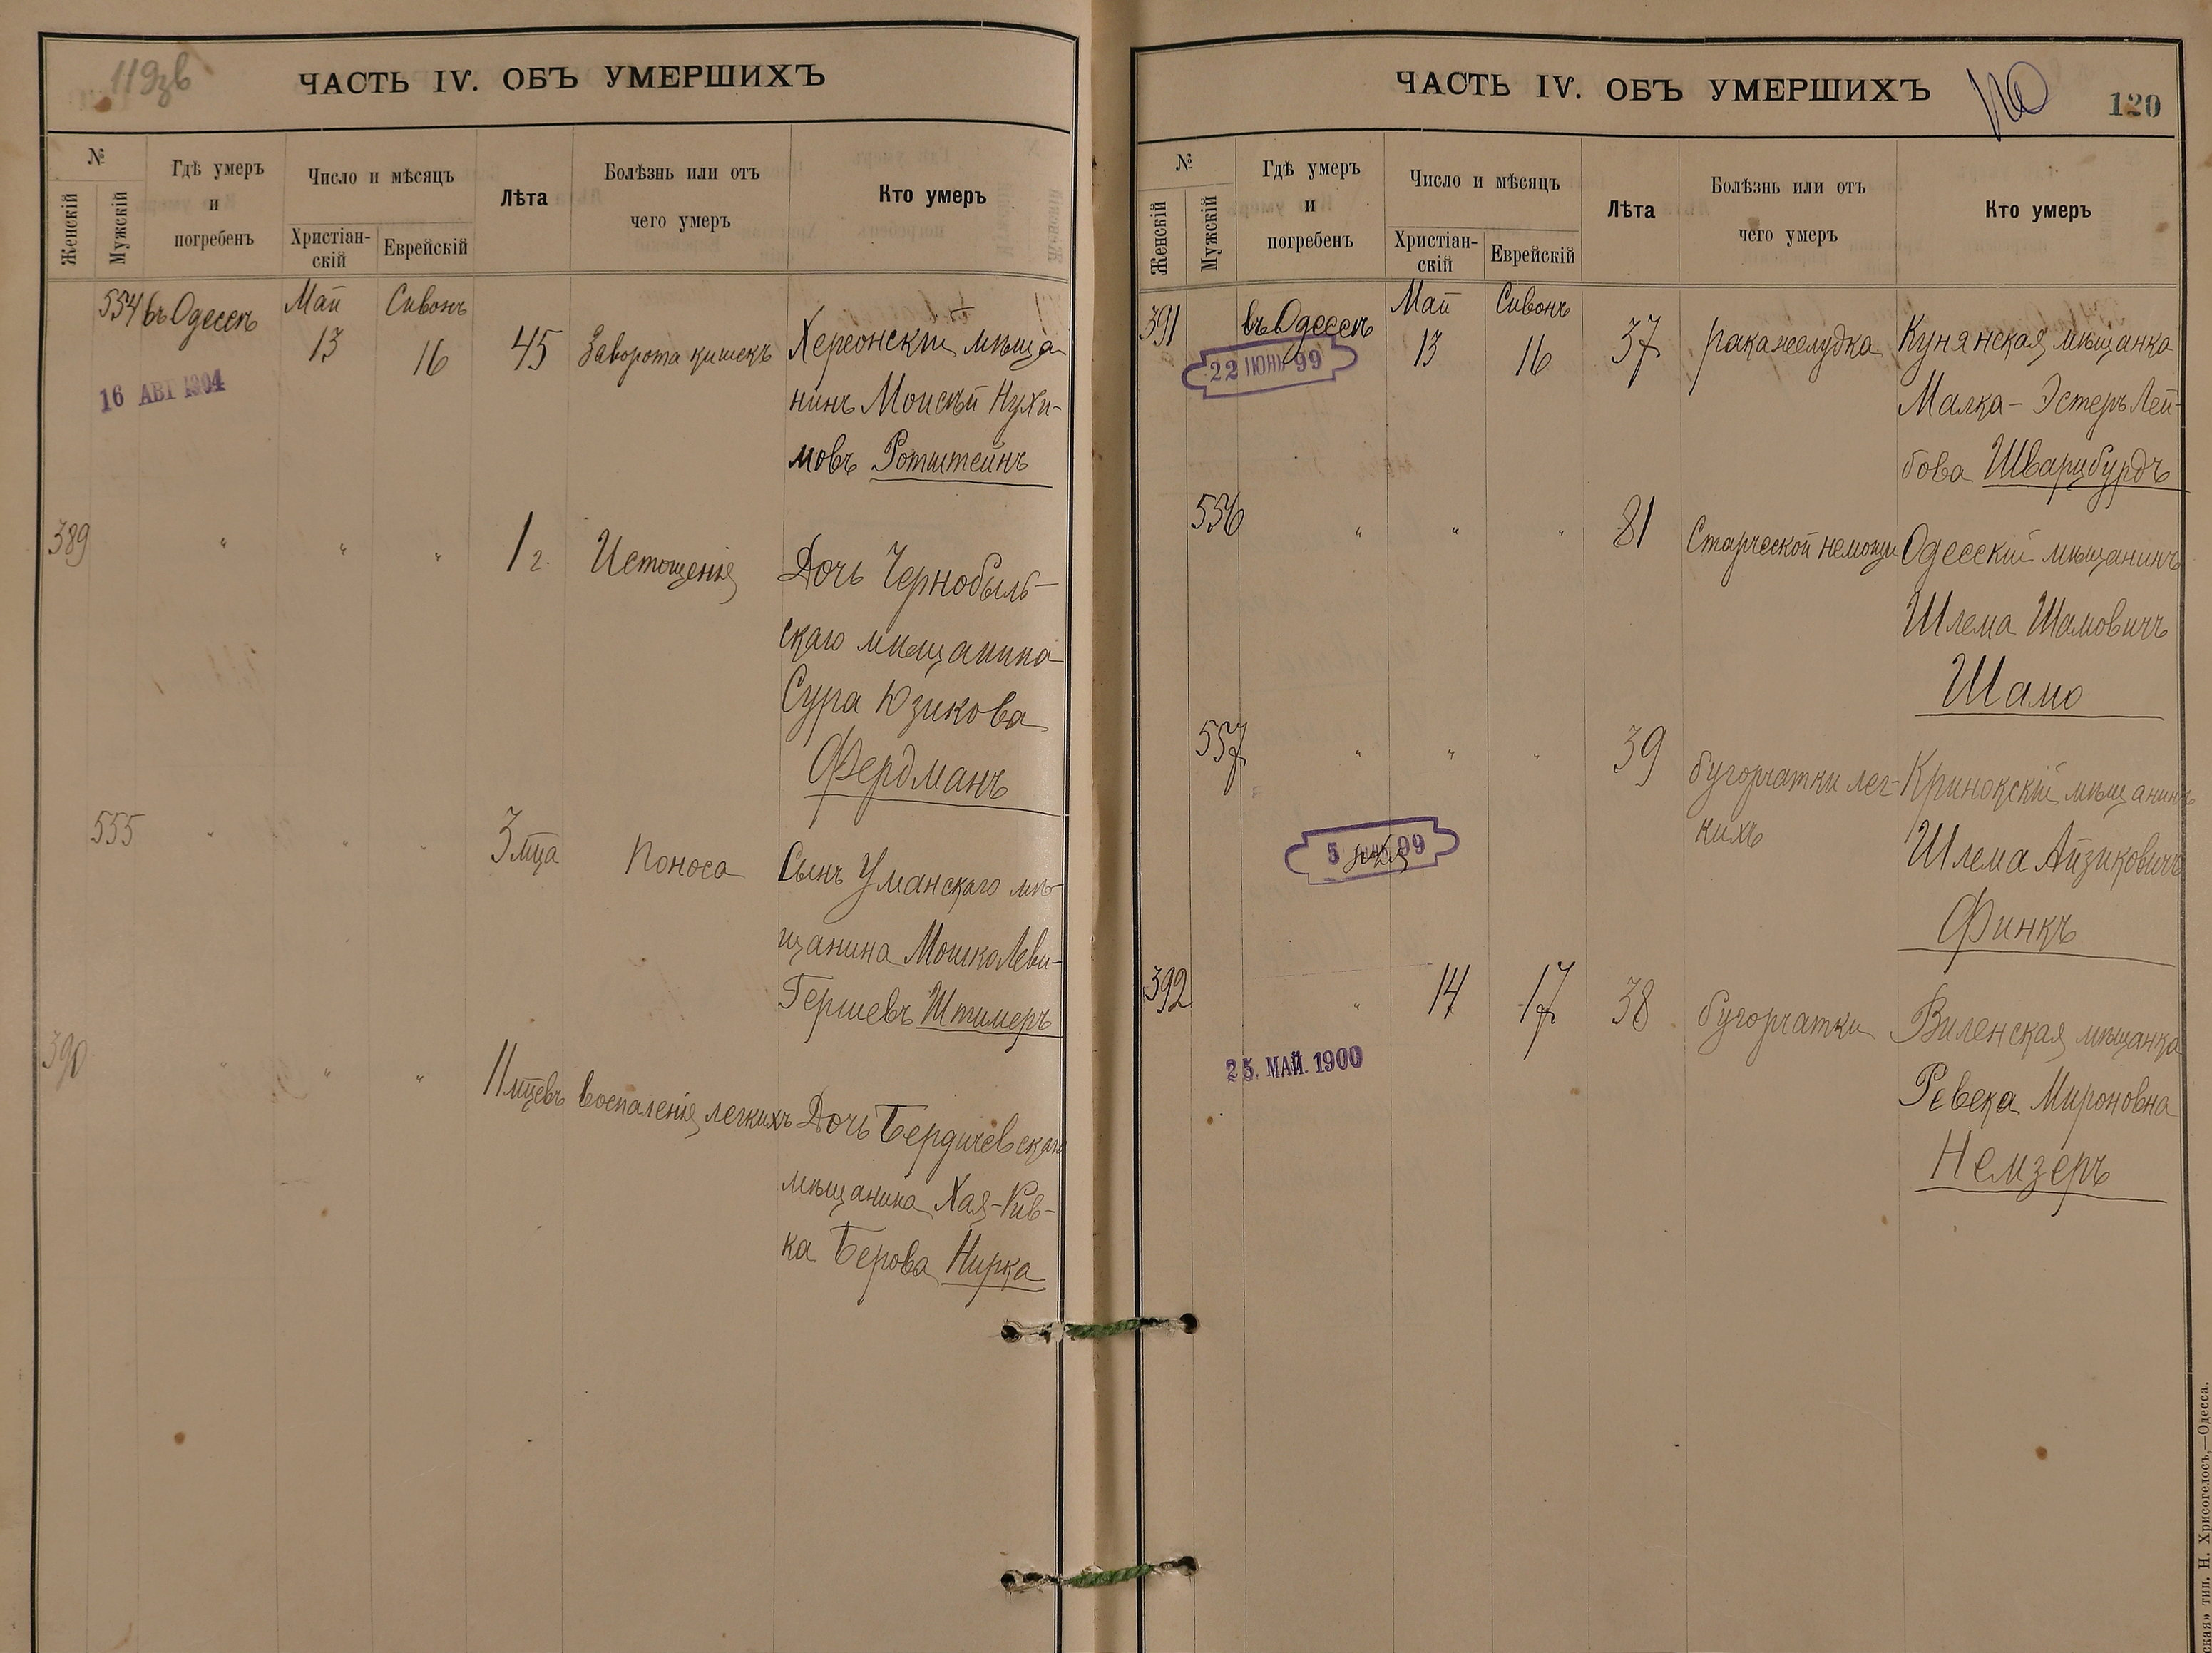 119зв
ЧАСТЬ IV. ОБЪ УМЕРШИХЪ
№
Женскій
Мужскій
Гдѣ умеръ
и
погребенъ
Число и мѣсяцъ
Христіан-
скій
Еврейскій
Лѣта
Болѣзнь или отъ
чего умеръ
Кто умеръ
554 въ Одессѣ Май 13 Сивонъ 16 45 Заворота кишекъ Херсонскій мѣща-
нинъ Моисѣй Нухи-
мовъ Ротштейнъ
16 АВГ 1904
389 " " " 1 г. Истощенія Дочь Чернобыль-
скаго мѣщанина
Сура Юзикова
Фердманъ
555 " " " 3 мца Поноса Сынъ Уманскаго мѣ-
щанина Мошко Леви-
Гершевъ Штимеръ
390 " " " 11 мцевъ воспаленія легкихъ Дочь Бердичевскаго
мѣщанина Хая-Рив-
ка Берова Нирка
ЧАСТЬ IV. ОБЪ УМЕРШИХЪ
120
№
Женскій
Мужскій
Гдѣ умеръ
и
погребенъ
Число и мѣсяцъ
Христіан-
скій
Еврейскій
Лѣта
Болѣзнь или отъ
чего умеръ
Кто умеръ
391 въ Одессѣ Май 13 Сивонъ 16 37 рака желудка Кунянская мѣщанка
Малка-Эстеръ Лей-
бова Шварцбурдъ
22 ІЮНЯ 99
556 " " " 81 Старческой немощи Одесскій мѣщанинъ
Шлема Шамовичъ
Шамо
557 " " " 39 бугорчатки лег- Кринокскій мѣщанинъ
кихъ Шлема Айзиковичъ
Финкъ
5 99
392 " 14 17 38 бугорчатки Виленская мѣщанка
Ревека Мироновна
Немзеръ
25. МАЙ. 1900
ская» тип. Н. Хрисогелосъ,—Одесса.